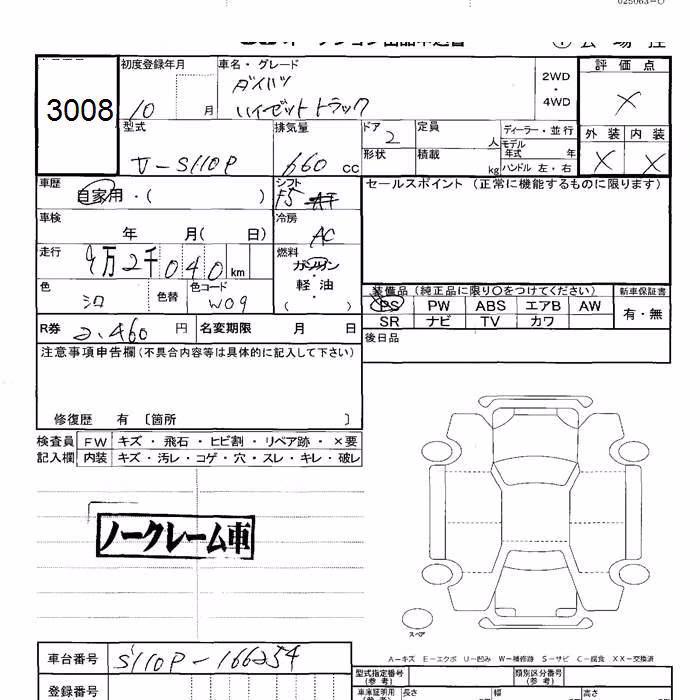 025063-0
3008
初度登録年月
10 月
車名・グレード
ダイハツ
ハイゼットトラック
2WD
・
4WD
評価点
×
外装 内装
× ×
型式
V-S110P
排気量
660 cc
ドア 2
形状
定員 人
積載 kg
ディーラー・並行
モデル年式 年
ハンドル 左・右
車歴
自家用・( )
シフト
F5
セールスポイント (正常に機能するものに限ります)
車検
年 月( 日)
冷房
AC
走行
9万2千040 km
燃料
ガソリン
軽・油
( )
色
シロ
色替
色コード
W09
装備品 (純正品に限り○をつけてください)
新車保証書
PS PW ABS エアB AW
有・無
SR ナビ TV カワ
R券 2,460 円
名変期限 月 日
後日品
注意事項申告欄 (不具合内容等は具体的に記入して下さい)
修復歴 有 〔箇所 〕
検査員
記入欄
FW キズ・飛石・ヒビ割・リペア跡・×要
内装 キズ・汚レ・コゲ・穴・スレ・キレ・破レ
ノークレーム車
スペア
A-キズ E-エクボ U-凹み W-補修跡 S-サビ C-腐食 XX-交換済
車台番号
S110P-166254
登録番号
型式指定番号
(参考)
類別区分番号
(参考)
車庫証明用
(参考)
長さ 幅 高さ